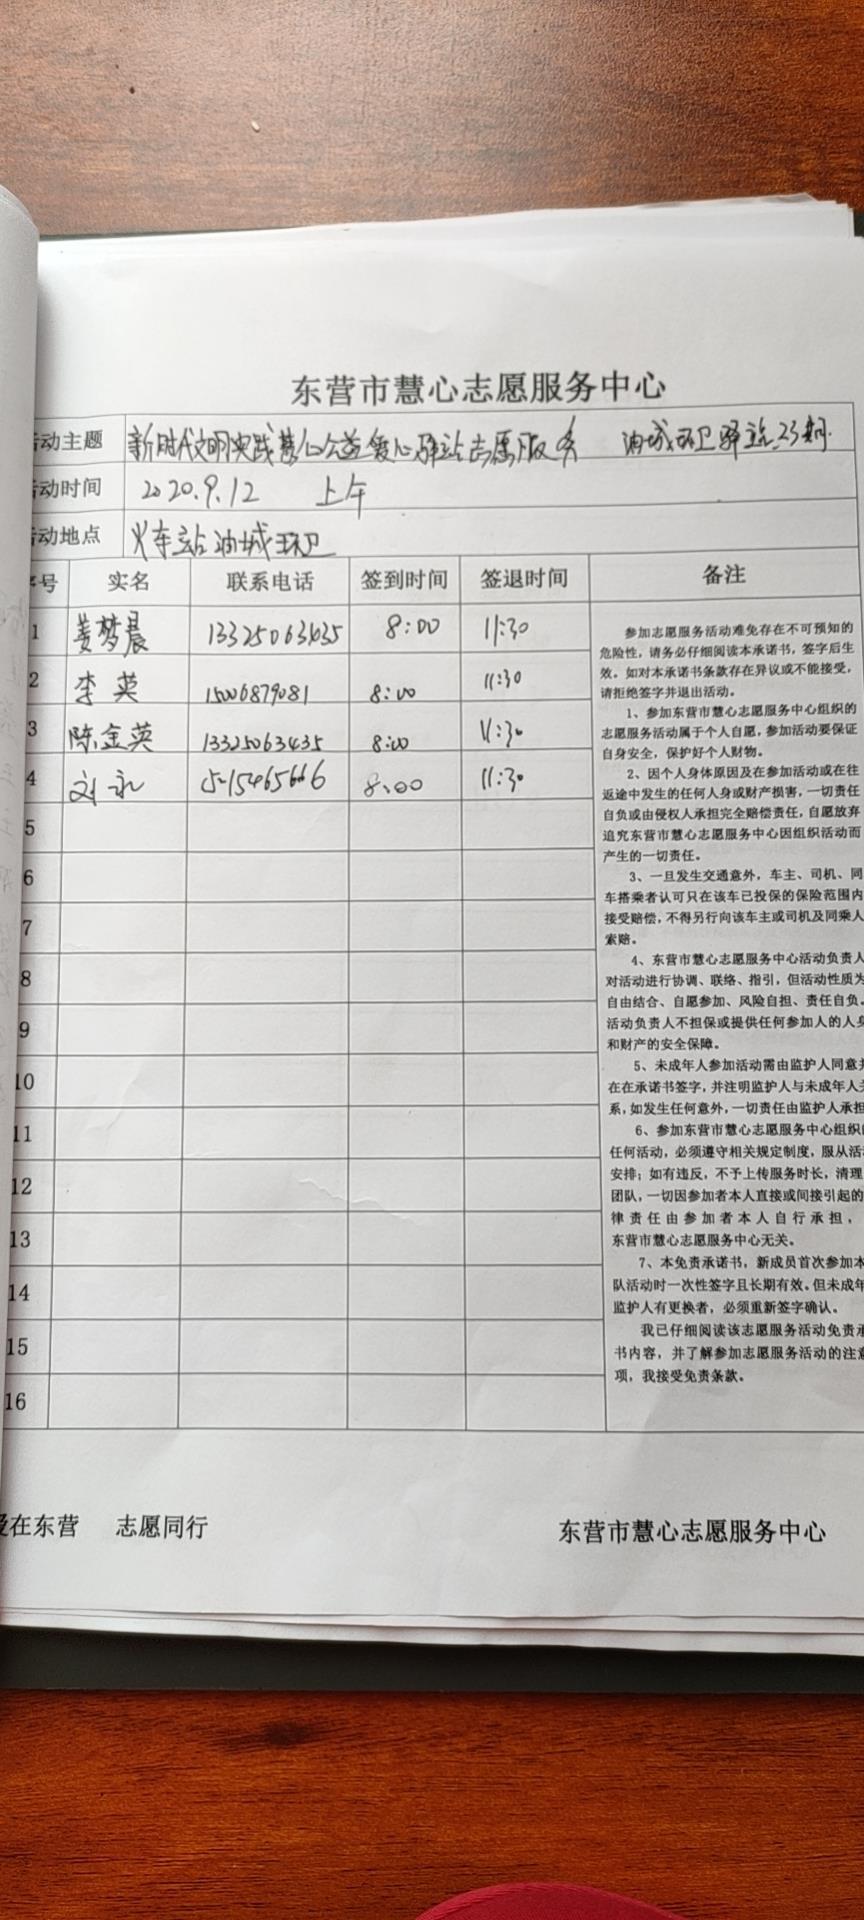 东营市慧心志愿服务中心
动主题 新时代文明实践慧心公益爱心驿站志愿服务 油城环卫驿站23期
动时间 2020.9.12 上午
动地点 火车站油城环卫
号 实名 联系电话 签到时间 签退时间 备注
1 姜梦晨 13325063435 8:00 11:30
2 李英 15006879081 8:00 11:30
3 陈金英 13325063435 8:00 11:30
4 刘永 15465666 8:00 11:30
5
6
7
8
9
10
11
12
13
14
15
16
参加志愿服务活动难免存在不可预知的
危险性，请务必仔细阅读本承诺书，签字后生
效。如对本承诺书条款存在异议或不能接受，
请拒绝签字并退出活动。
1、参加东营市慧心志愿服务中心组织的
志愿服务活动属于个人自愿，参加活动要保证
自身安全，保护好个人财物。
2、因个人身体原因及在参加活动或在往
返途中发生的任何人身或财产损害，一切责任
自负或由侵权人承担完全赔偿责任，自愿放弃
追究东营市慧心志愿服务中心因组织活动而
产生的一切责任。
3、一旦发生交通意外，车主、司机、同
车搭乘者认可只在该车已投保的保险范围内
接受赔偿，不得另行向该车主或司机及同乘人
索赔。
4、东营市慧心志愿服务中心活动负责人
对活动进行协调、联络、指引，但活动性质为
自由结合、自愿参加、风险自担、责任自负。
活动负责人不担保或提供任何参加人的人身
和财产的安全保障。
5、未成年人参加活动需由监护人同意并
在在承诺书签字，并注明监护人与未成年人关
系，如发生任何意外，一切责任由监护人承担
6、参加东营市慧心志愿服务中心组织的
任何活动，必须遵守相关规定制度，服从活动
安排；如有违反，不予上传服务时长，清理
团队，一切因参加者本人直接或间接引起的
律责任由参加者本人自行承担，
东营市慧心志愿服务中心无关。
7、本免责承诺书，新成员首次参加本
队活动时一次性签字且长期有效。但未成年
监护人有更换者，必须重新签字确认。
我已仔细阅读该志愿服务活动免责承
书内容，并了解参加志愿服务活动的注意
项，我接受免责条款。
爱在东营 志愿同行 东营市慧心志愿服务中心